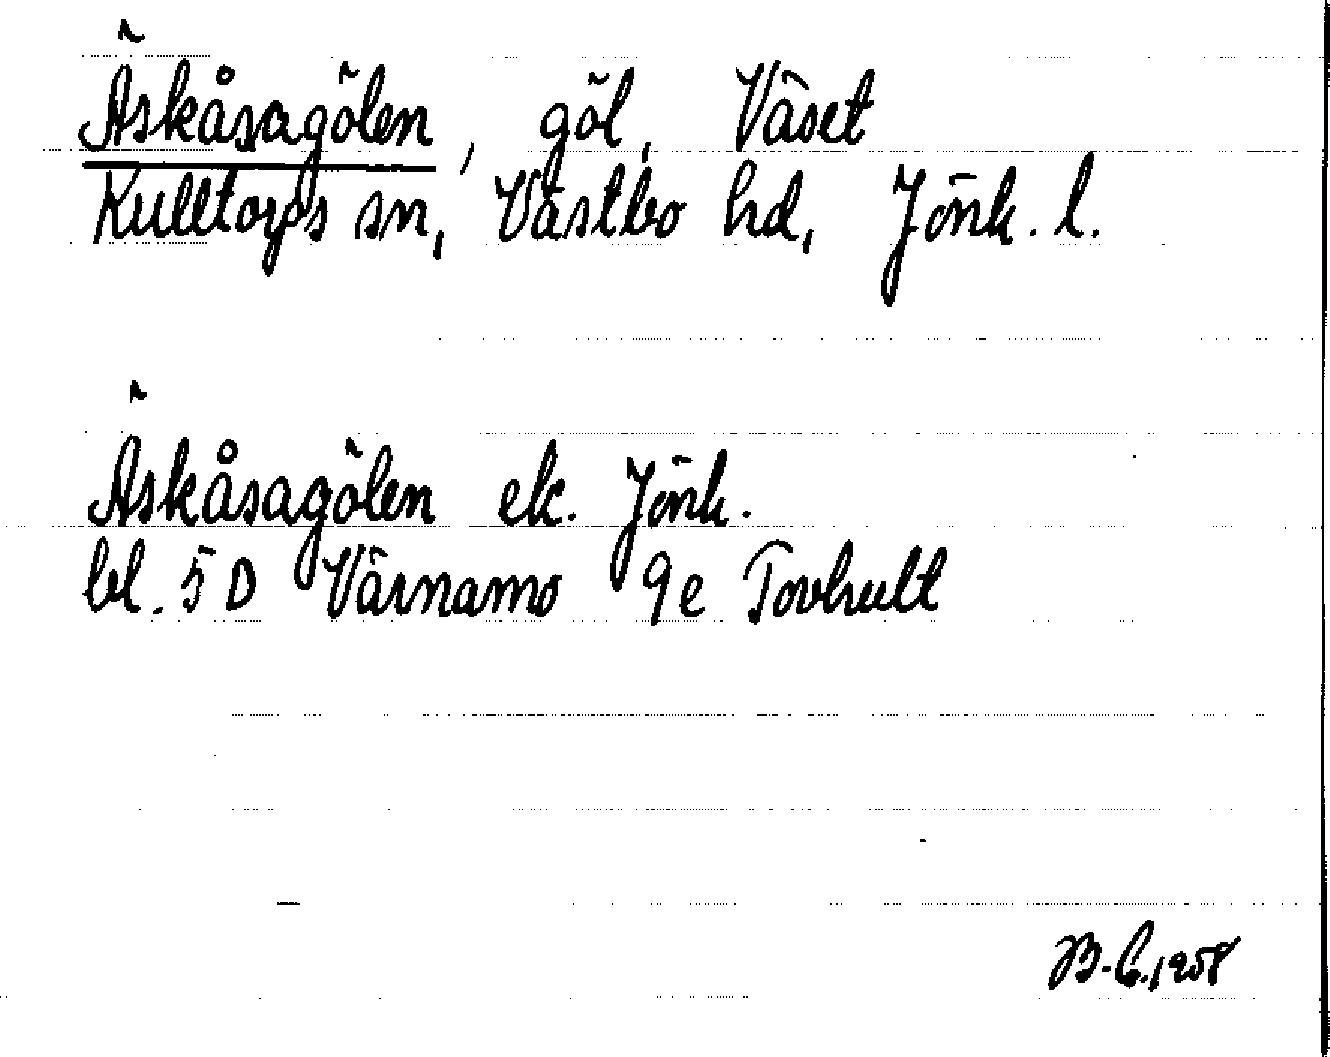 Äskåsagölen, göl, Väset
Kulltorps sn, Västbo hd, Jönk. l.
Äskåsagölen ek. Jönk.
bl. 5 D Värnamo 9 e Tovhult
B-C. 1958